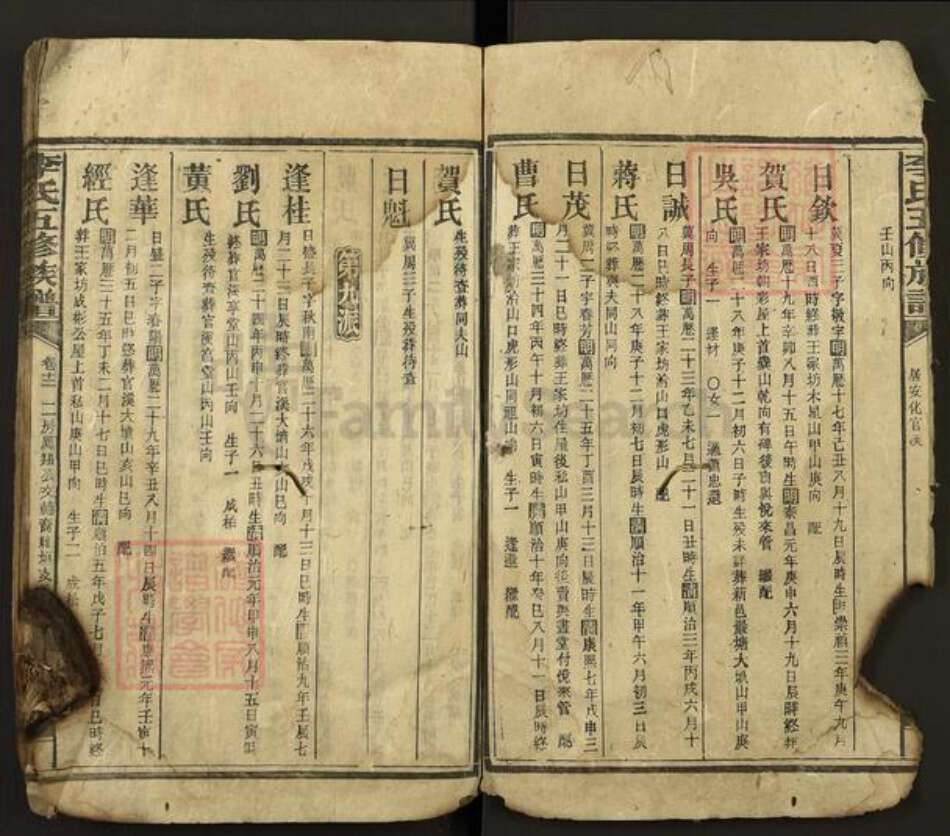 李氏五修族譜
居安化官溪
壬山丙向
日欽
萬及三子字敬宇明萬歷十七年己丑八月十九日辰時生明崇禎三年庚午九月
十八日酉時終葬王家坊木星山甲山庚向 配
賀氏
明萬歷十九年辛卯八月十五日午時生明泰昌元年庚申六月十九日辰時終葬
王家坊朝彩屋上首 山乾向有碑後官與悅來管 繼配
吳氏
明萬歷二十八年庚子十二月初六日子時生歿未詳葬新邑叢塘大塅山甲山庚
向 生子一 逢材 ○女一 適 忠選
日誠
萬周長子明萬歷二十三年乙未七月二十一日丑時生清順治三年丙戌六月十
八日巳時終葬王家坊治山口虎形山 配
蔣氏
明萬歷二十八年庚子十二月初七日辰時生清順治十一年甲午六月初三日辰
時終葬與夫同山同向
日茂
萬周二子字春芳明萬歷二十五年丁酉三月十三日辰時生清康熙七年戊申三
月二十一日巳時終葬王家坊住屋後私山甲山庚向後賣與書堂付悅來管 配
曹氏
明萬歷三十四年丙午十月初六日寅時生清順治十年癸巳八月十一日辰時終
葬王家 治山口虎形山同祖山 生子一 逢進 繼配
賀氏
生歿待查葬同夫山
日魁
萬周三子生歿葬待查
第九派
逢桂
日盛長子字秋南明萬歷二十六年戊戌十月十三日巳時生清順治九年壬辰七
月二十三日辰時終葬官溪大塅山 山巳向 配
劉氏
明萬歷二十四年丙申十月二十六日丑時生清順治元年甲申八月十五日寅時
終葬官溪亭堂山丙山壬向 生子一 成柏 繼配
黃氏
生歿待查葬官溪窩堂山丙山壬向
逢華
日盛二子字春陽明萬歷二十九年辛丑八月十四日辰時生清康熙元年壬寅十
二月初五日巳時終葬官溪大塅山亥山巳向 配
經氏
明萬歷三十五年丁未二月十七日巳時生清順治五年戊子七月 日巳時終
葬王家坊成彬公屋上首私山庚山甲向 生子二 成松
李氏五修族譜
卷廿一 二房鳳陽公支